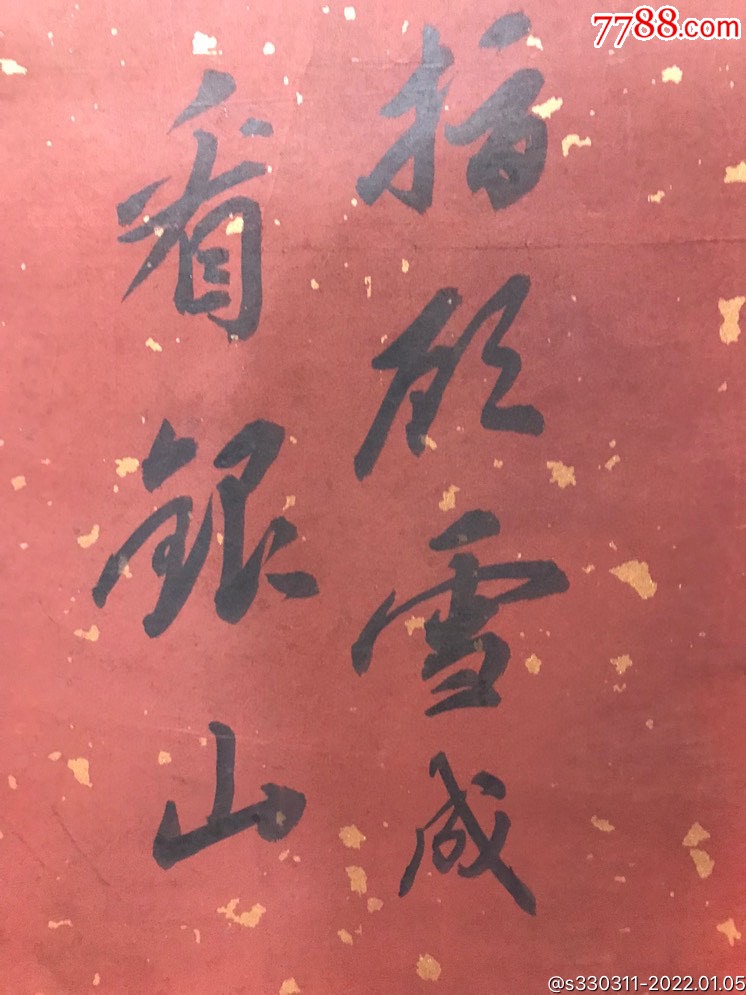 7788.com
指顾雪成
看銀山
@s330311-2022.01.05